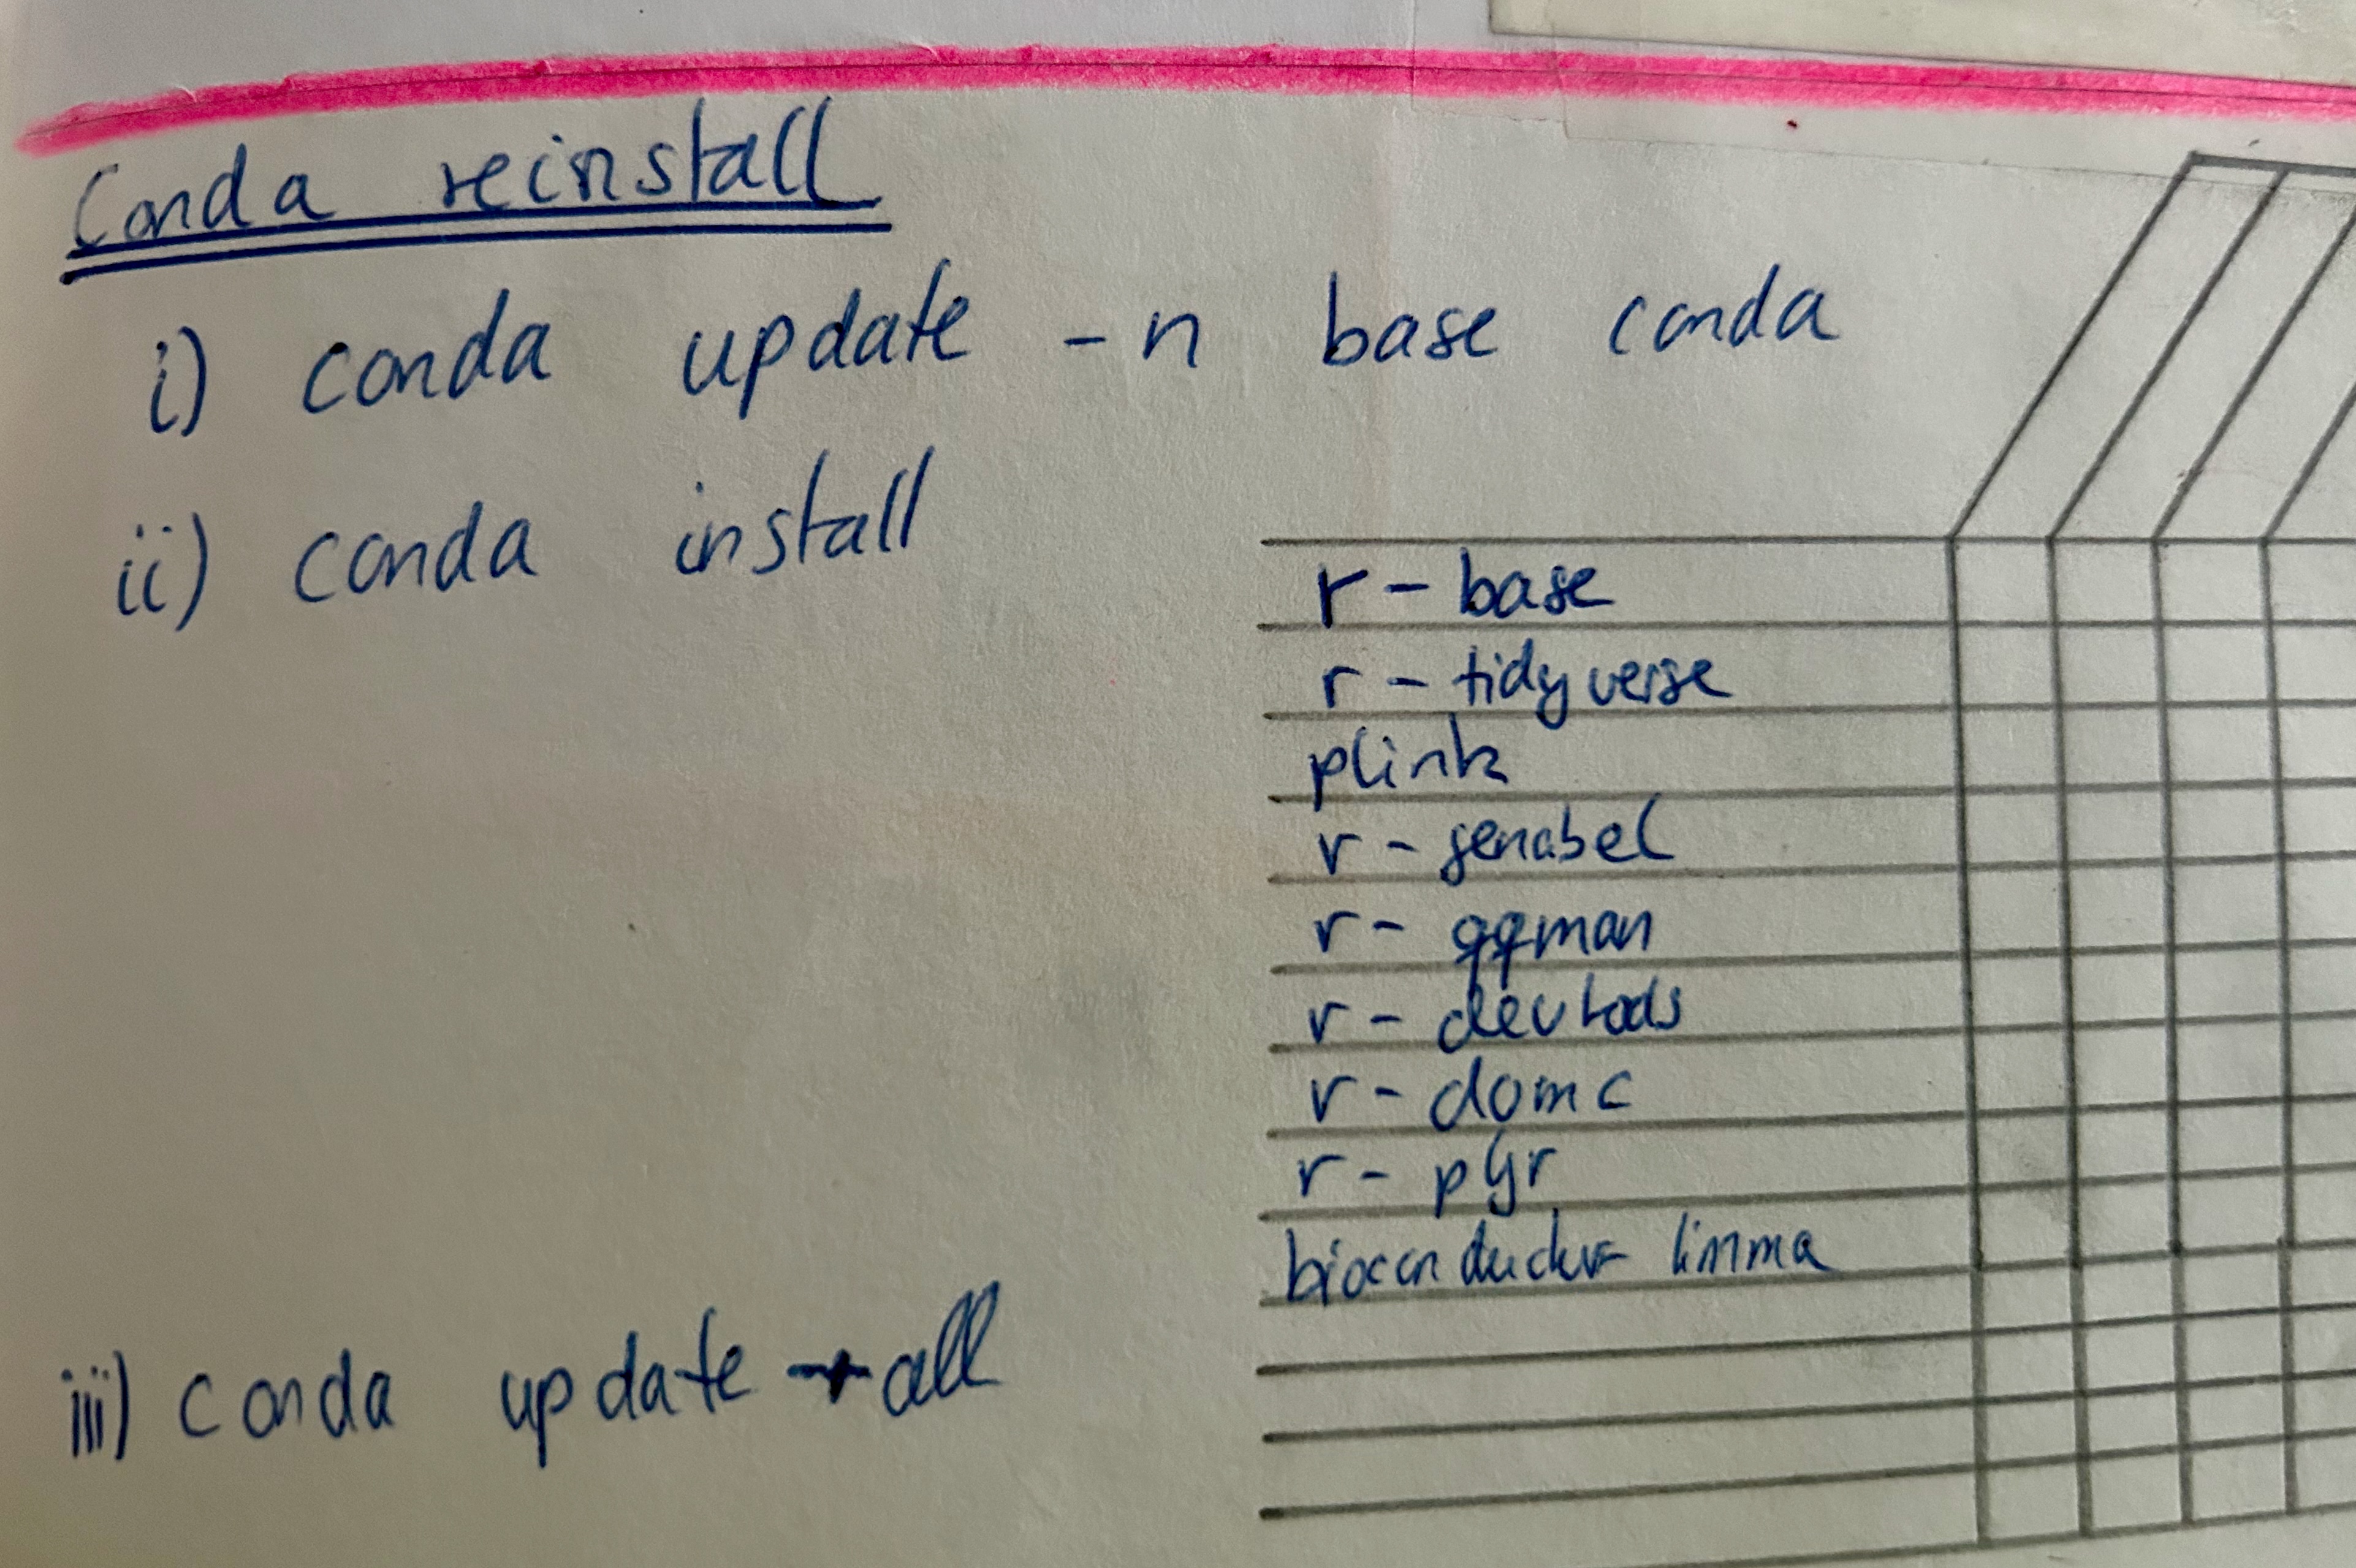 Conda reinstall
i) conda update -n base conda
ii) conda install
r - base
r - tidyverse
plink
r - genabel
r - qqman
r - devtools
r - domc
r - plyr
bioconductor- limma
iii) conda update --all